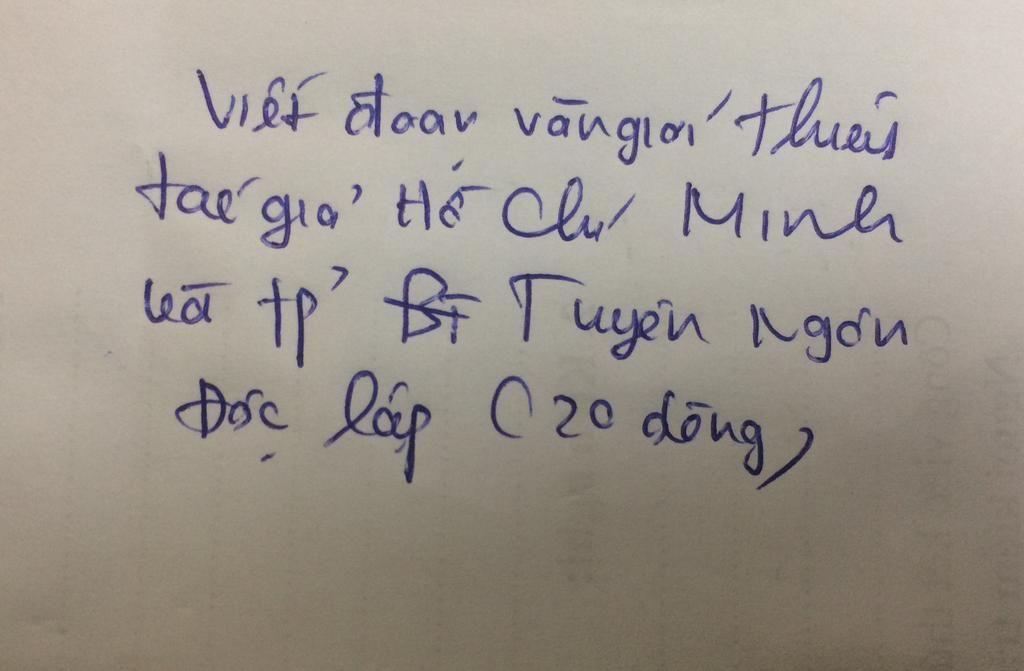 Viết đoạn văn giới thiệu
tác giả Hồ Chí Minh
và tp' Tuyên Ngôn
Độc lập (20 dòng)